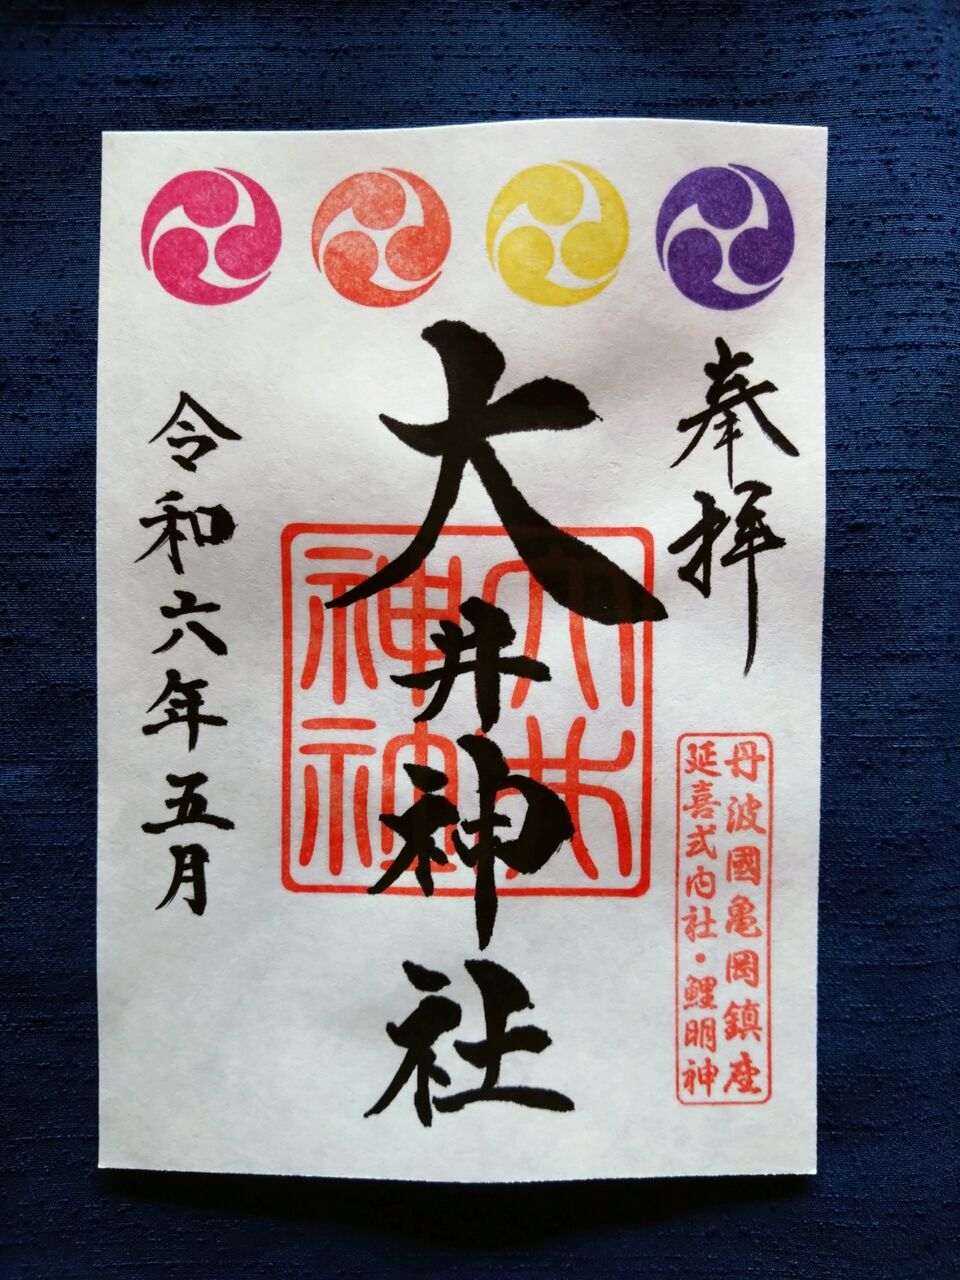 奉拝
丹波國亀岡鎮座
延喜式内社・鯉明神
大井神社
大井
神社
令和六年五月